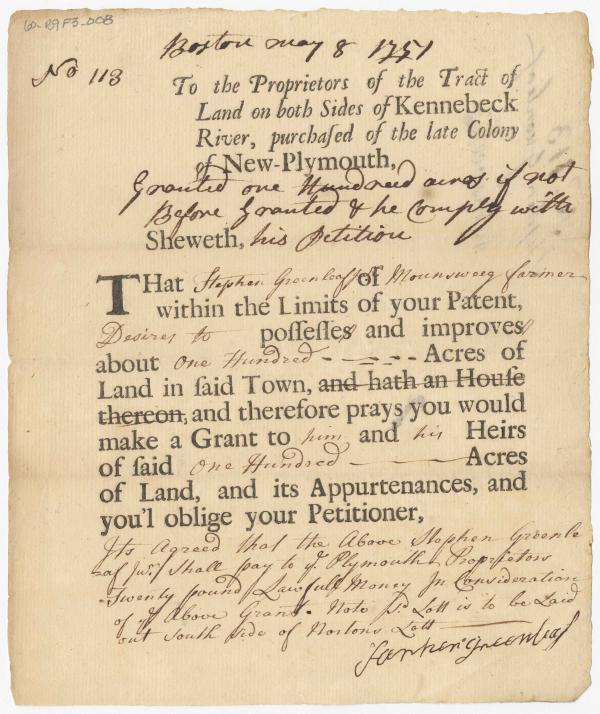 Boston may 8 1751
No 113
To the Proprietors of the Tract of
Land on both Sides of Kennebeck
River, purchaſed of the late Colony
of New-Plymouth,
Granted one Hundred acres if not
Before Granted & he Comply with
Sheweth, his Petition
THat Stephen Greenleaf Jur of Mounsweeg farmer
within the Limits of your Patent,
Desires to poſſeſſes and improves
about one Hundred Acres of
Land in ſaid Town, and hath an Houſe
thereon, and therefore prays you would
make a Grant to him and his Heirs
of ſaid One Hundred Acres
of Land, and its Appurtenances, and
you'l oblige your Petitioner,
Its Agreed that the Above Stephen Greenle
=af Junr Shall pay to ye Plymouth Proprietors
Twenty pound Lawfull Money In Consideration
of ye Above Grant. Note Sd Lott is to be Laid
out South Side of Nortons Lott
Greenleaf